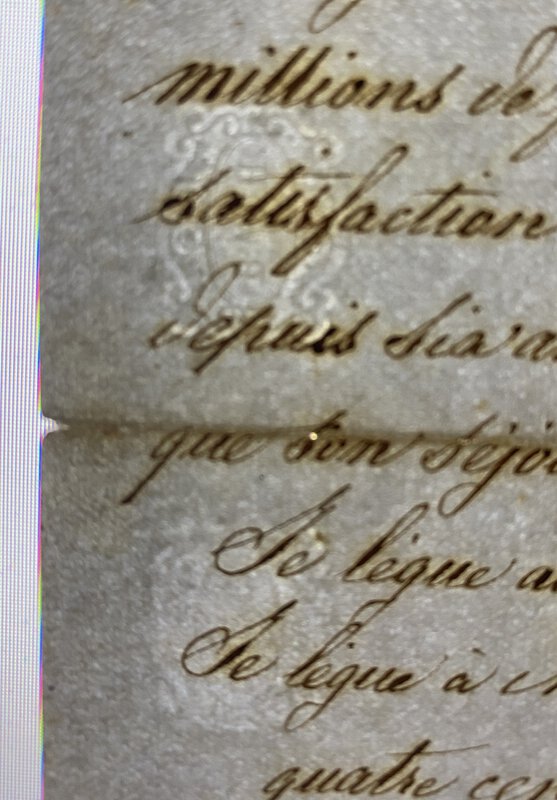 millions de
satisfaction
depuis six
que son séjo
Je lègue a
Je lègue à
quatre cen